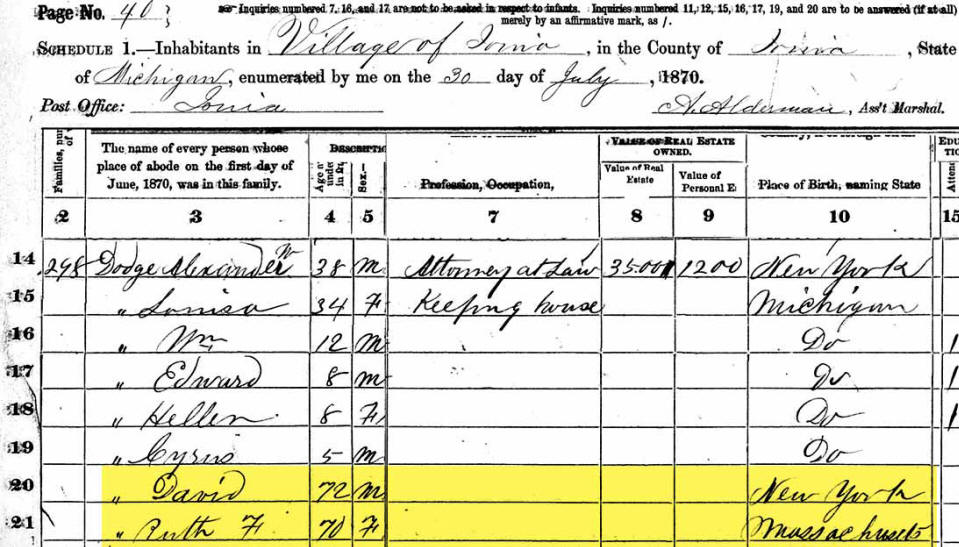 Page No. 40
Inquiries numbered 7, 16, and 17 are not to be asked in respect to infants. Inquiries numbered 11, 12, 15, 16, 17, 19, and 20 are to be answered (if at all)
merely by an affirmative mark, as /.
SCHEDULE 1.—Inhabitants in Village of Ionia, in the County of Ionia, State
of Michigan, enumerated by me on the 30 day of July, 1870.
Post Office: Ionia A. Alderman, Ass't Marshal.
Families, The name of every person whose place of abode on the first day of June, 1870, was in this family. Age Sex.— Profession, Occupation, VALUE OF REAL ESTATE OWNED. Value of Real Estate Value of Personal E Place of Birth, naming State
2 3 4 5 7 8 9 10 15
14 298 Dodge Alexander W 38 M Attorney at Law 3500 1200 New York
15 " Louisa 34 F Keeping house Michigan
16 " Wm 12 M Do 1
17 " Edward 8 M Do 1
18 " Hellen 8 F Do 1
19 " Cyrus 5 M Do
20 " David 72 M New York
21 " Ruth F 70 F Massachusets